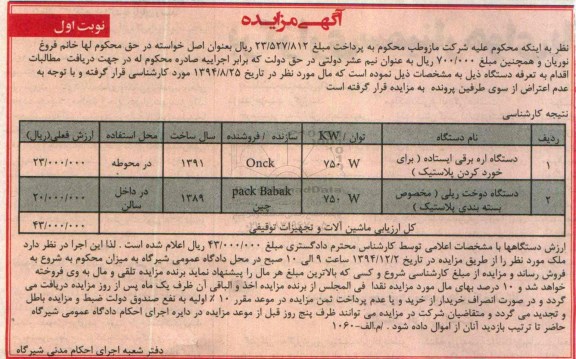 آگهی مزایده
نوبت اول
نظر به اینکه محکوم علیه شرکت مازوطب محکوم به پرداخت مبلغ ۲۳/۵۲۷/۸۱۲ ریال بعنوان اصل خواسته در حق محکوم لها خانم فروغ
نوریان و همچنین مبلغ ۷۰۰/۰۰۰ به عنوان نیم عشر دولتی در حق دولت که برابر اجراییه صادره محکوم له در جهت دریافت مطالبات
اقدام به تعرفه دستگاه ذیل به مشخصات ذیل نموده است که مال مورد نظر در تاریخ ۱۳۹۴/۸/۲۵ مورد کارشناسی قرار گرفته و با توجه به
عدم اعتراض از سوی طرفین پرونده به مزایده قرار گرفته است
نتیجه کارشناسی
ردیف نام دستگاه توان / KW سازنده / فروشنده سال ساخت محل استفاده ارزش فعلی(ریال)
۱ دستگاه اره برقی ایستاده ( برای خورد کردن پلاستیک ) ۷۵۰ W Onck ۱۳۹۱ در محوطه ۲۳/۰۰۰/۰۰۰
۲ دستگاه دوخت ریلی ( مخصوص بسته بندی پلاستیک ) ۷۵۰ W pack Babak چین ۱۳۸۹ در داخل سالن ۲۰/۰۰۰/۰۰۰
کل ارزیابی ماشین آلات و تجهیزات توقیفی ۴۳/۰۰۰/۰۰۰
ارزش دستگاهها با مشخصات اعلامی توسط کارشناس محترم دادگستری مبلغ ۴۳/۰۰۰/۰۰۰ ریال اعلام شده است . لذا این اجرا در نظر دارد
ملک مورد نظر را از طریق مزایده در تاریخ ۱۳۹۴/۱۲/۲ ساعت ۹ الی ۱۰ صبح در محل دادگاه عمومی شیرگاه به میزان محکوم به شروع به
فروش رساند و مزایده از مبلغ کارشناسی شروع و کسی که بالاترین مبلغ هر مال را پیشنهاد نماید برنده مزایده تلقی و مال به وی فروخته
خواهد شد و ۱۰ درصد بهای مال مورد مزایده نقدا فی المجلس از برنده مزایده اخذ و الباقی آن ظرف یک ماه پس از روز مزایده دریافت می
گردد و در صورت انصراف خریدار از خرید و یا عدم پرداخت ثمن مزایده در موعد مقرر ۱۰٪ اولیه به نفع صندوق دولت ضبط و مزایده باطل
و تجدید می گردد و متقاضیان شرکت در مزایده می توانند ظرف پنج روز قبل از موعد مزایده در دایره اجرای احکام دادگاه عمومی شیرگاه
حاضر تا ترتیب بازدید آنان از اموال داده شود . /م.الف-۱۰۶۰
دفتر شعبه اجرای احکام مدنی شیرگاه